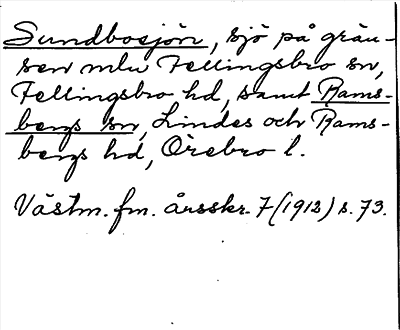 Sundbosjön, sjö på grän-
sen mln Fellingsbro sn,
Fellingsbro hd, samt Rams-
bergs sn, Lindes och Rams-
bergs hd, Örebro l.
Västm. fm. årsskr. 7 (1912) s. 73.